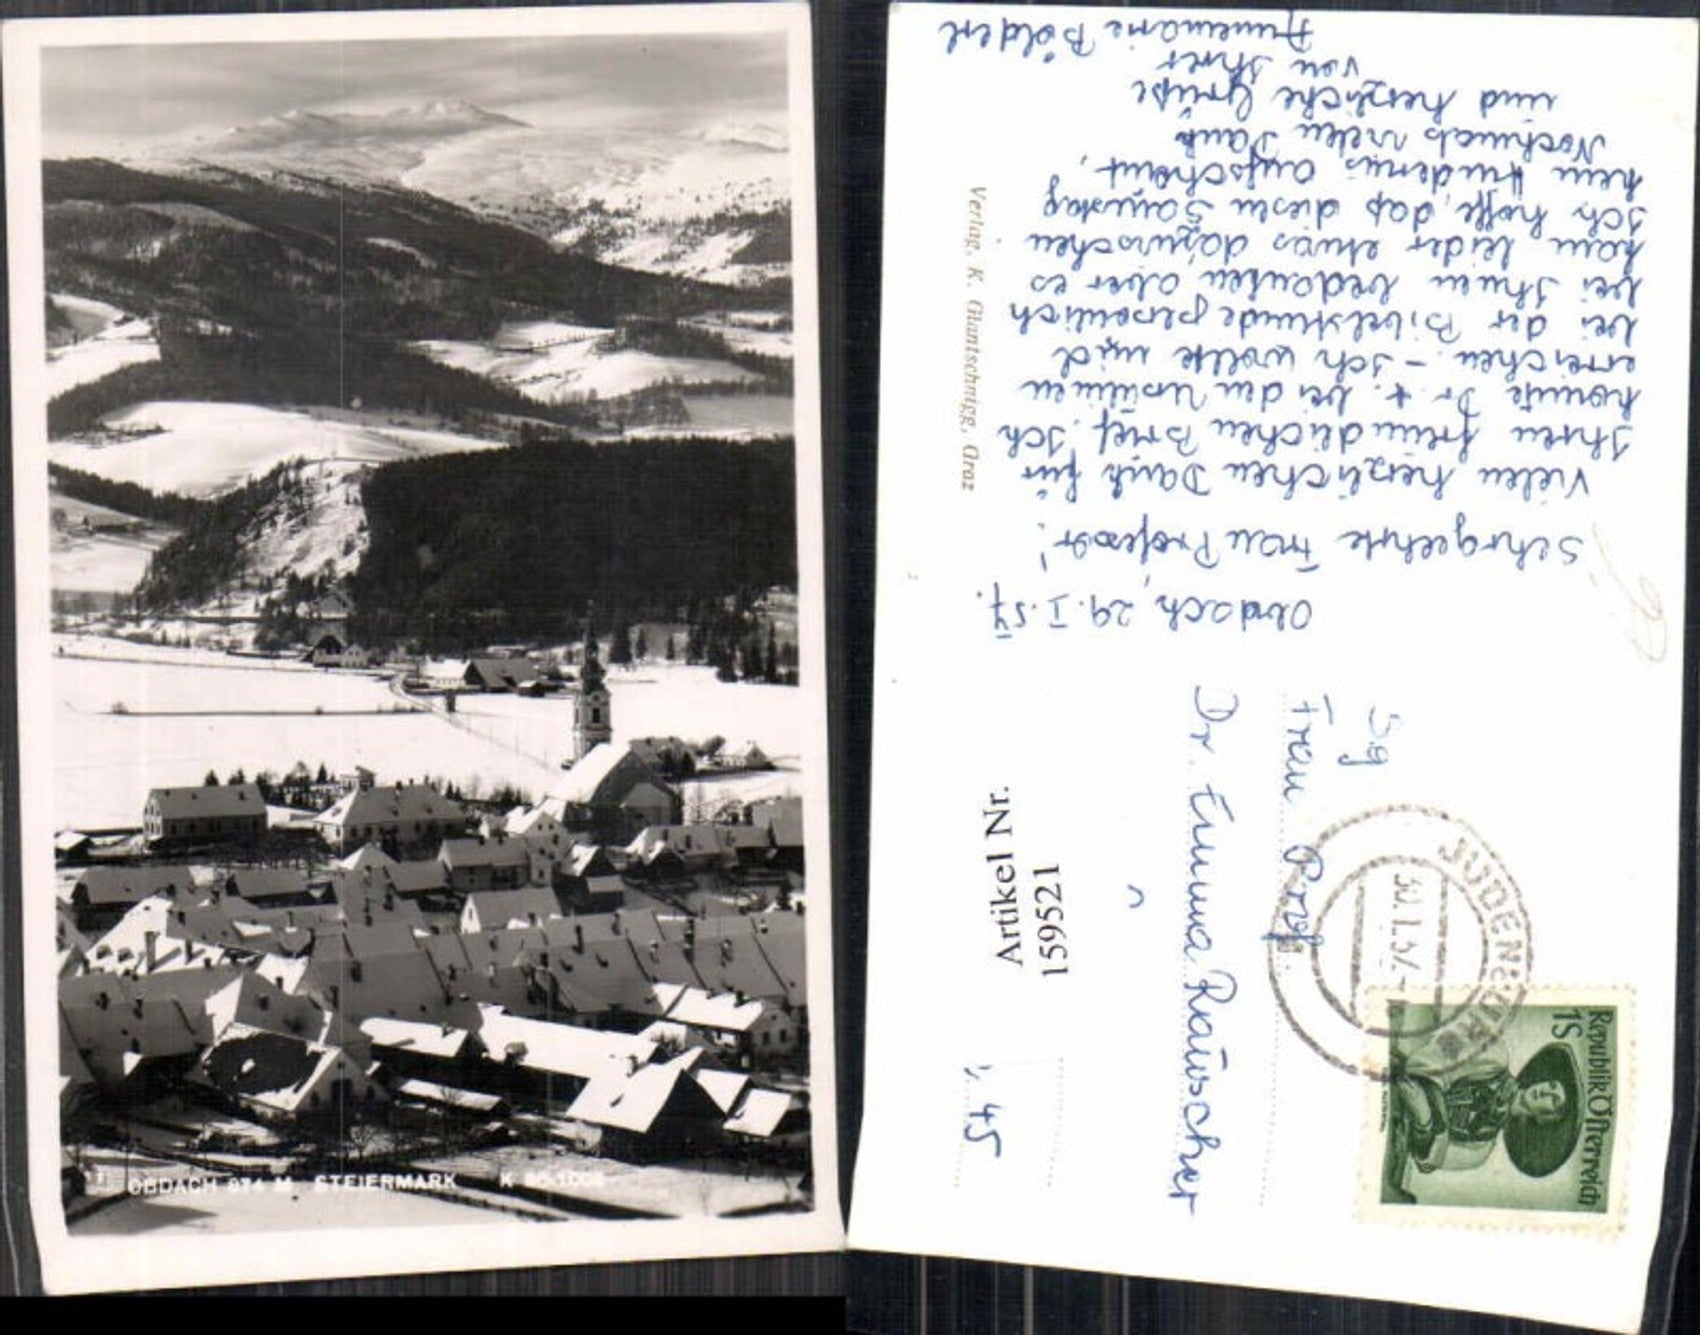 OBDACH 874 M STEIERMARK K
Obdach, 29. I. 57.
Sehrgeehrte Frau Professor!
Vielen herzlichen Dank für
Ihren freundlichen Brief. Ich
konnte Dr. t. bei den
erreichen. – Ich wollte mich
bei der Bibelstunde persönlich
bei Ihnen bedanken aber es
kam leider etwas dazwischen
Ich hoffe, daß diesen Samstag
kein Hindernis aufscheint.
Nochmals vielen Dank
und herzliche Grüße
von Ihrer
Annemarie Bölderl
Verlag. K. Glantschnigg, Graz
S.g
Frau Prof.
Dr. Emma Rauscher
Artikel Nr.
159521
45
JUDENBURG
30.I.57
Republik Österreich
1S